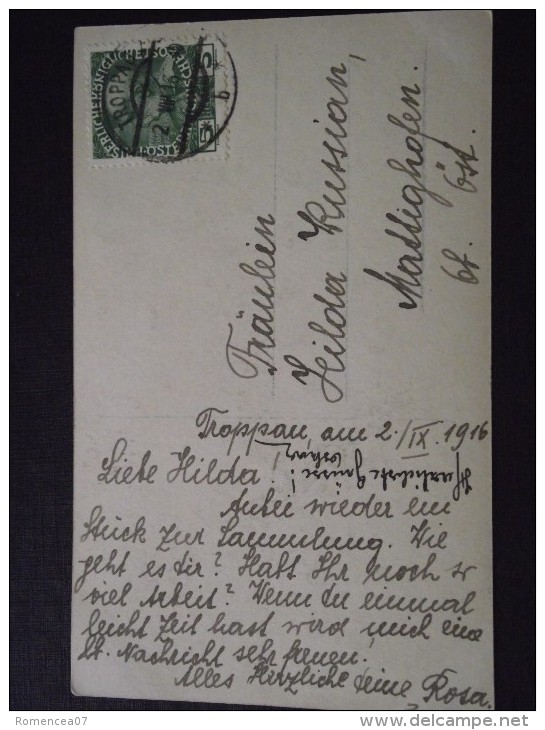 TROPPAU
2. IX 16
b
KAISERLICHE KÖNIGLICHE ÖSTERREICHISCHE POST
5
5
Fräulein
Hilda Russian,
Mattighofen.
Ob. Öst.
Troppau, am 2./IX. 1916
Liebe Hilda!
Herzlichste Grüsse!
Anbei wieder ein
Stück zur Sammlung. Wie
geht es dir? Habt Ihr noch so
viel Arbeit? Wenn du einmal
leicht Zeit hast wird mich eine
lb. Nachricht sehr freuen.
Alles Herzliche deine Rosa.
Romencea07